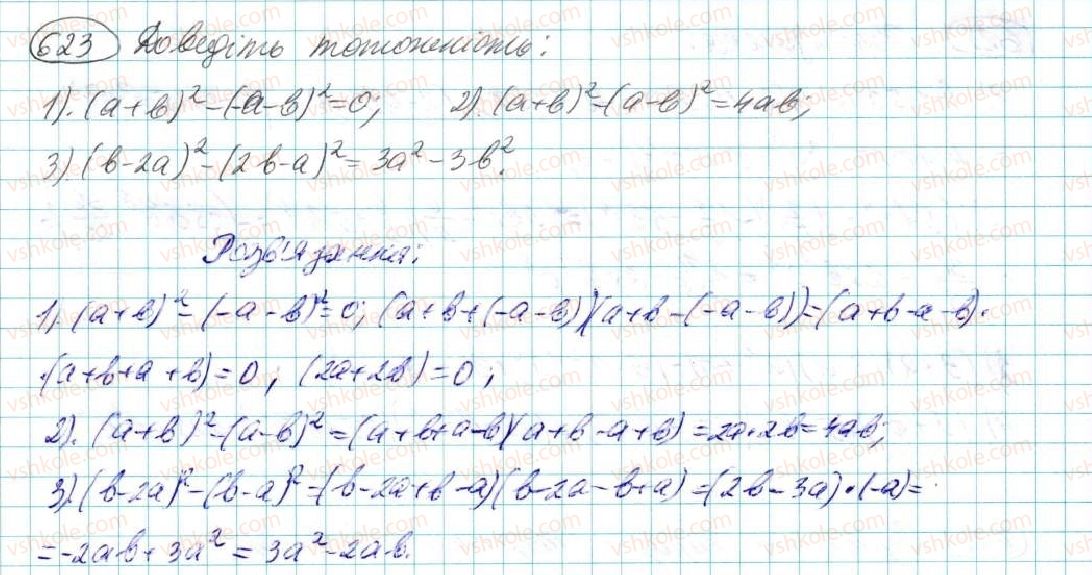 623 Доведіть тотожність:
1). (a+b)²-(-a-b)²=0; 2). (a+b)²-(a-b)²=4ab;
3) (b-2a)²-(2b-a)²=3a²-3b².
Розв'язання:
1). (a+b)²-(-a-b)²=0; (a+b+(-a-b))(a+b-(-a-b))=(a+b-a-b)·
·(a+b+a+b)=0; (2a+2b)=0;
2). (a+b)²-(a-b)²=(a+b+a-b)(a+b-a+b)=2a·2b=4ab;
3) (b-2a)²-(b-a)²-(b-2a+b-a)(b-2a-b+a)=(2b-3a)·(-a)=
=-2ab+3a²=3a²-2ab.
vshkole.com